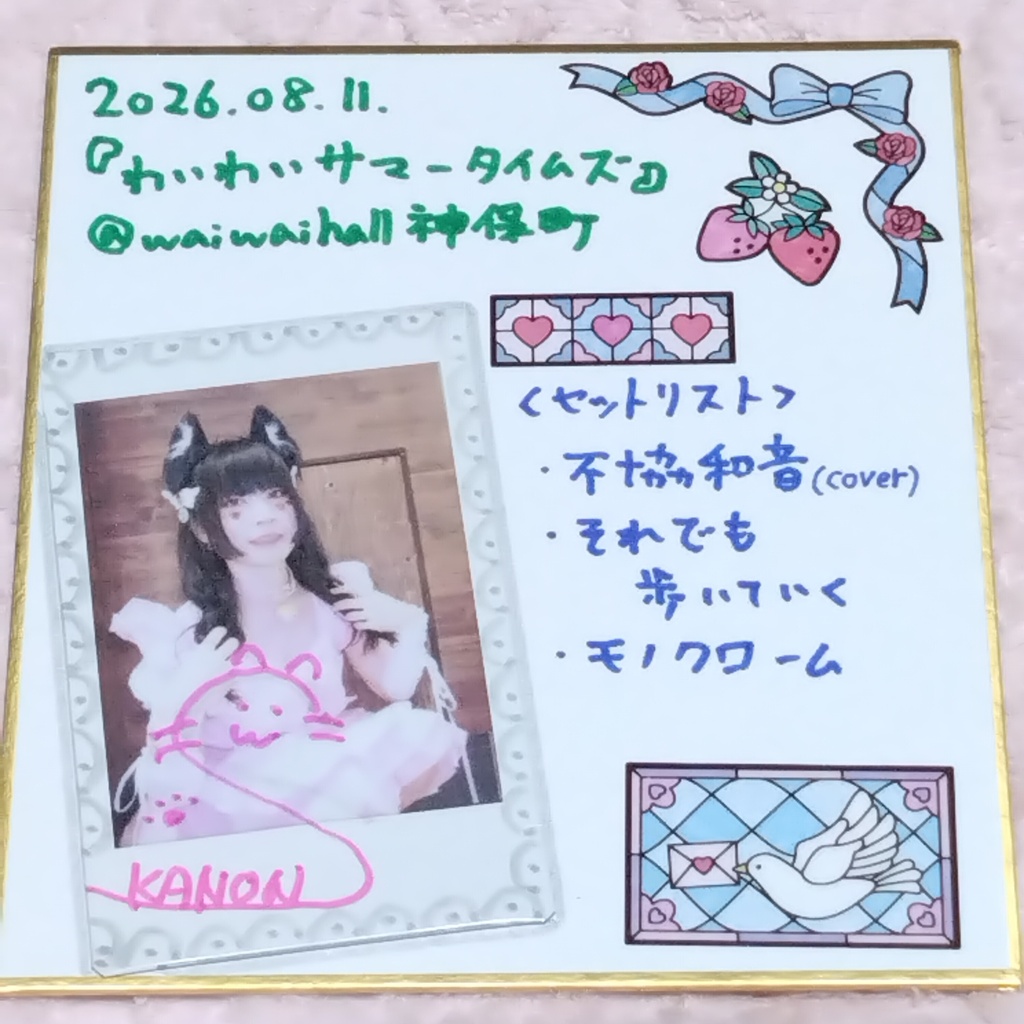 2026.08.11.
『わいわいサマータイムズ』
@waiwaihall神保町
<セットリスト>
・不協和音(cover)
・それでも
歩いていく
・モノクローム
KANON